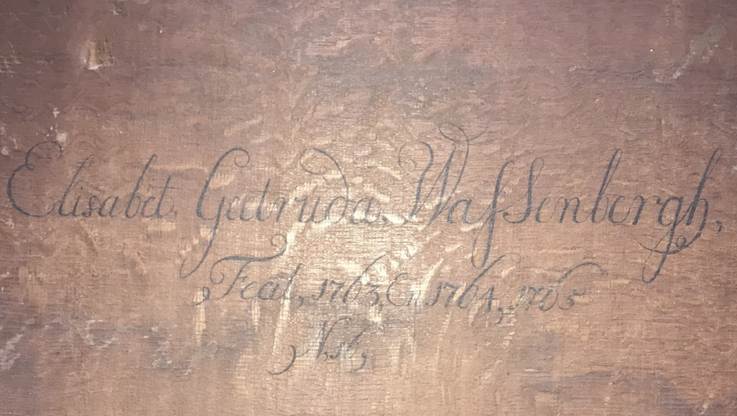 Elisabet. Geetruida. Wassenbergh,
Fecit, 1763, En 1764, 1765
N,1,